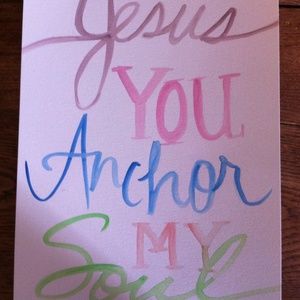 Jesus
YOU
Anchor
MY
Soul